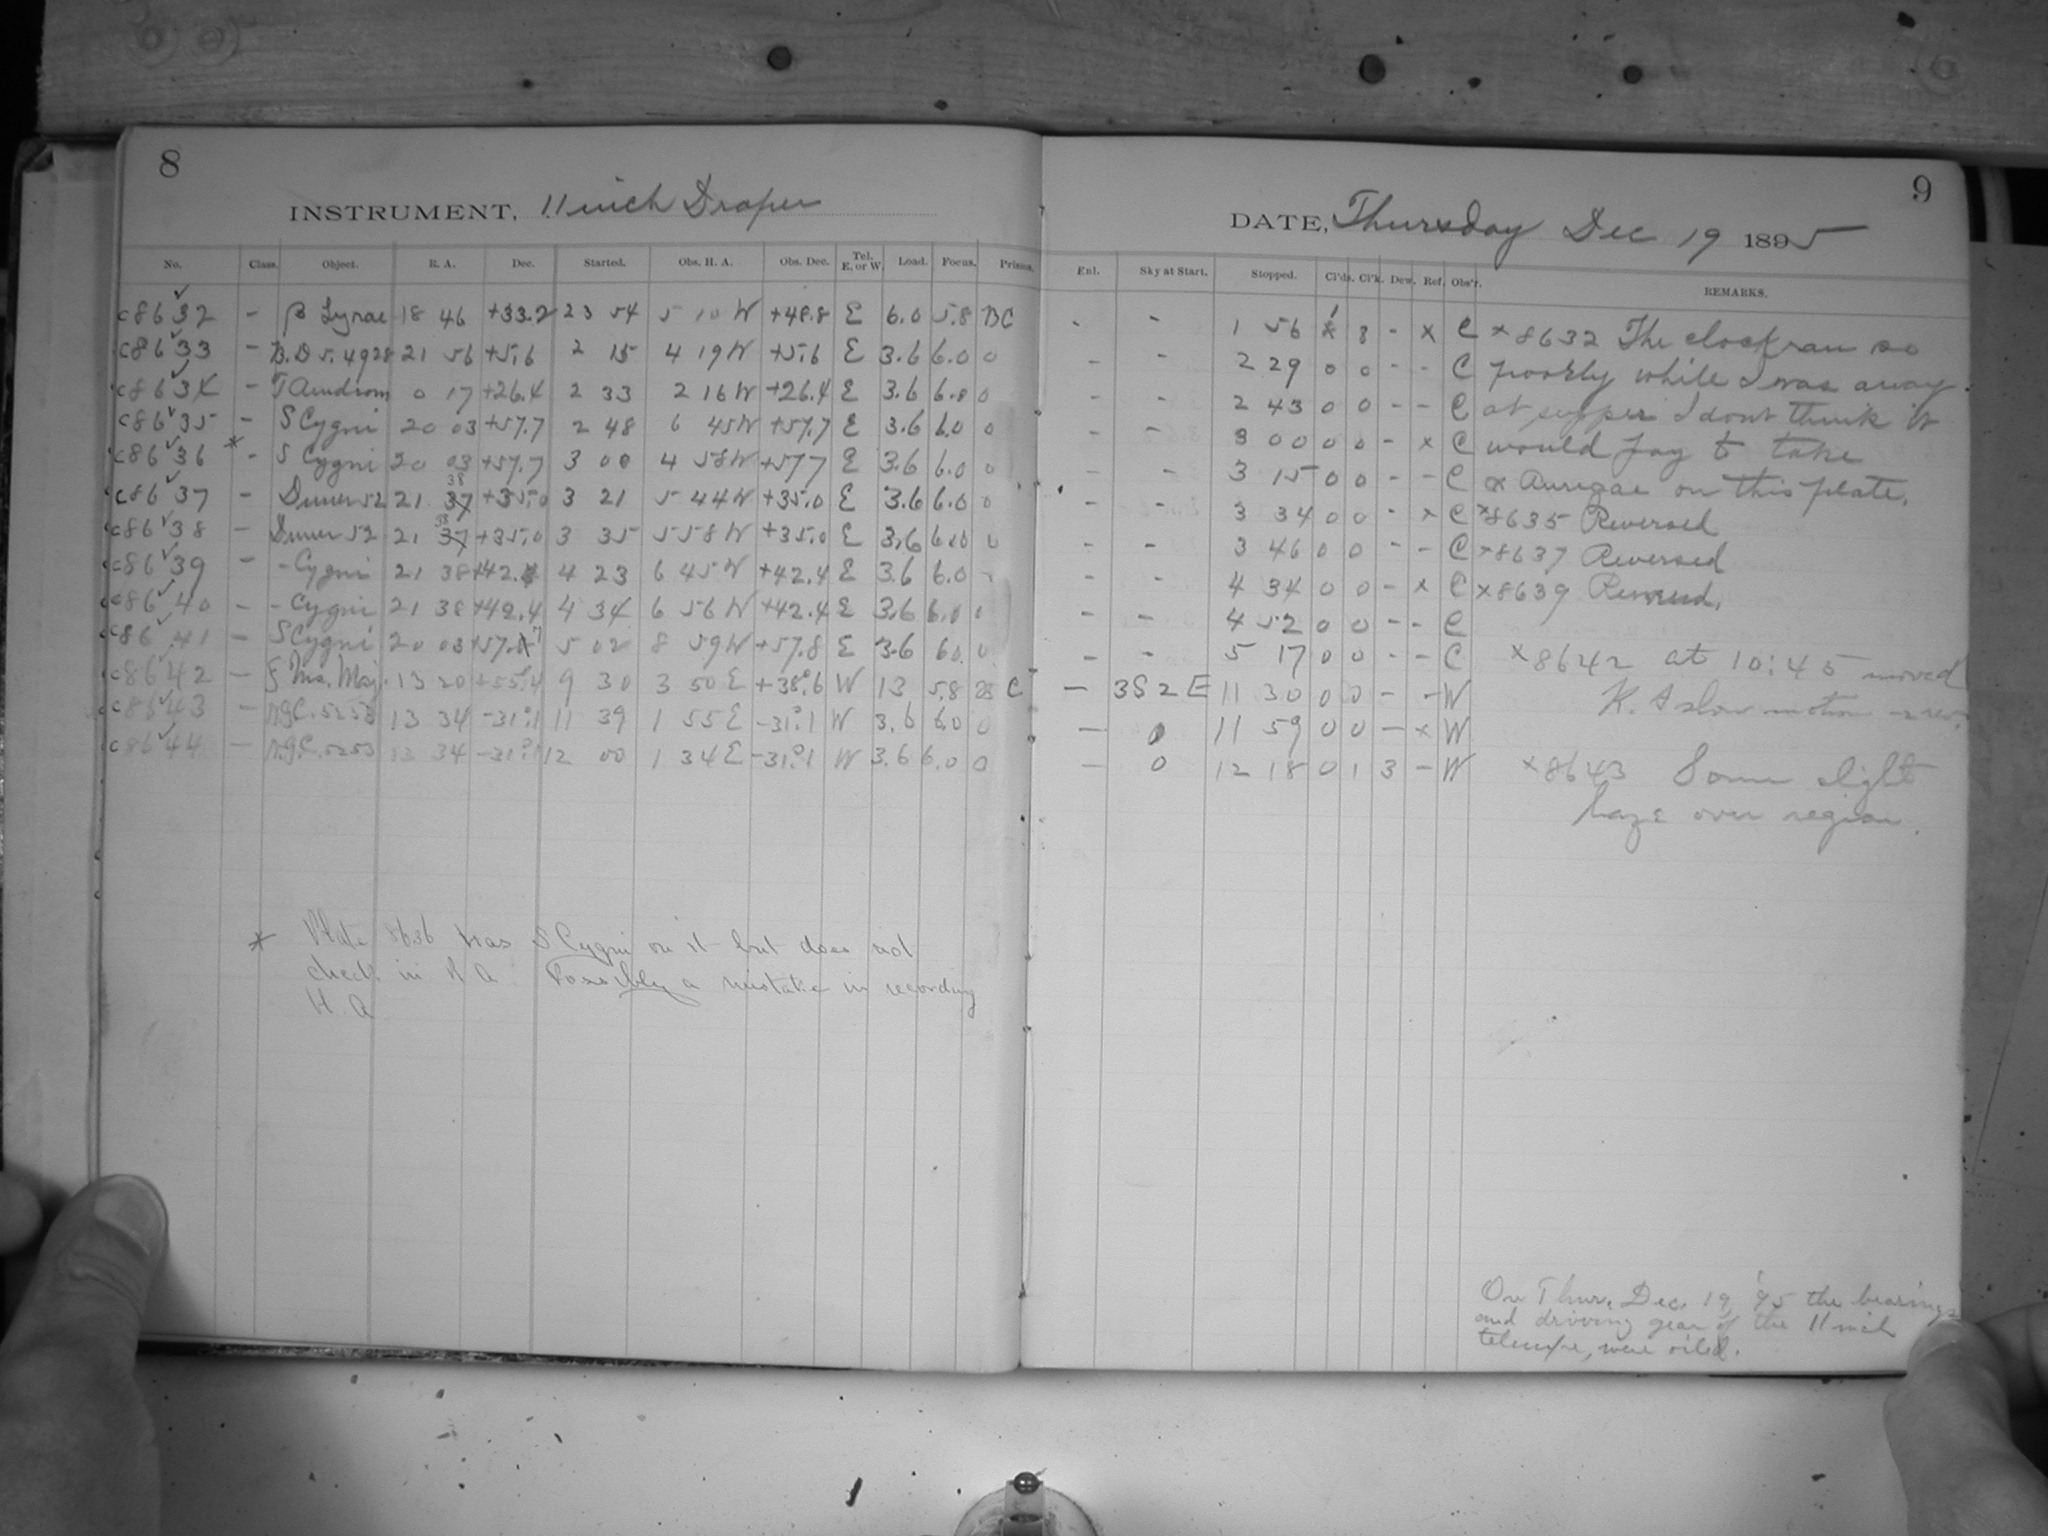 8
INSTRUMENT, 11 inch Draper
No. Class. Object. R. A. Dec. Started. Obs. H. A. Obs. Dec. Tel. E. or W. Load. Focus. Prisms.
c8632 - β Lyrae 18 46 +33.2 23 54 5 10 W +48.8 E 6.0 5.8 BC
c8633 - B.D 5.4928 21 56 +5.6 2 15 4 19 W +5.6 E 3.6 6.0 0
c8634 - T Androm 0 17 +26.4 2 33 2 16 W +26.4 E 3.6 6.0 0
c8635 - S Cygni 20 03 +57.7 2 48 6 45 W +57.7 E 3.6 6.0 0
c8636 * - S Cygni 20 03 +57.7 3 00 4 58 W +57.7 E 3.6 6.0 0
c8637 - Duner 52 21 38 +35.0 3 21 5 44 W +35.0 E 3.6 6.0 0
c8638 - Duner 52 21 38 +35.0 3 35 5 58 W +35.0 E 3.6 6.0 0
c8639 - - Cygni 21 38 +42.4 4 23 6 45 W +42.4 E 3.6 6.0 -
c8640 - - Cygni 21 38 +42.4 4 34 6 56 W +42.4 E 3.6 6.0 0
c8641 - S Cygni 20 03 +57.7 5 02 8 59 W +57.8 E 3.6 6.0 0
c8642 - ζ Urs. Maj. 13 20 +55.4 9 30 3 50 E +38.6 W 13 5.8 C
c8643 - N.G.C. 5253 13 34 -31.1 11 39 1 55 E -31.1 W 3.6 6.0 0
c8644 - N.G.C. 5253 13 34 -31.1 12 00 1 34 E -31.1 W 3.6 6.0 0
* Plate 8636 has S Cygni on it but does not
check in R A Possibly a mistake in recording
H. A
9
DATE, Thursday Dec 19 1895
Enl. Sky at Start. Stopped. Cl'ds. Cl'k. Dew. Ref. Obs'r. REMARKS.
- - 1 56 1 3 - x C x 8632 The clock ran so
- - 2 29 0 0 - - C poorly while I was away
- - 2 43 0 0 - - C at supper I dont think it
- - 3 00 0 0 - x C would pay to take
- - 3 15 0 0 - - C α Aurigae on this plate.
- - 3 34 0 0 - x C x8635 Reversed
- - 3 46 0 0 - - C x8637 Reversed
- - 4 34 0 0 - x C x8639 Reversed.
- - 4 52 0 0 - - C
- - 5 17 0 0 - - C x8642 at 10:45 moved
- 3S 2E 11 30 0 0 - - W R. A slow motion
- 0 11 59 0 0 - x W
- 0 12 18 0 1 3 - W x8643 Some slight
haze over region.
On Thur. Dec. 19 '95 the bearings
and driving gear of the 11 inch
telescope, were oiled.